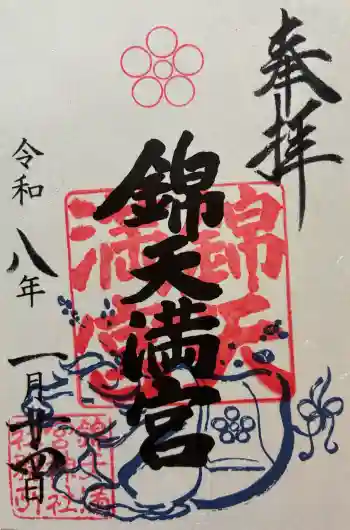 奉拝
錦天満宮
錦天
満宮
令和八年一月廿四日